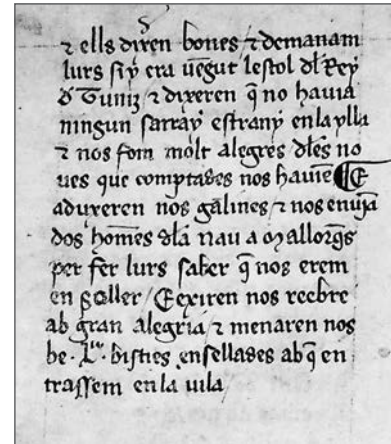 ⁊ ells dixen bones / ⁊ demanam
lurs si y era uēgut lestol dl Rey
d Tuniz ⁊ dixeren q̄ no hauia
ningun sarray estrany en la ylla
⁊ nos fom molt alegres dles no
ues que comptades nos hauiē ¶ E
aduxeren nos galines / ⁊ nos enuiā
dos homes dla nau a Mallorqs
per fer lurs saber q̄ nos erem
en Soller / E exiren nos recebre
ab gran alegria / ⁊ menaren nos
be · Lta · bisties ensellades ab q̄ en
trassem en la uila